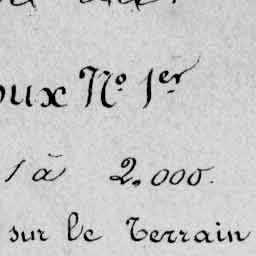 oux N.o 1.er
1 à 2.000.
sur le Terrain